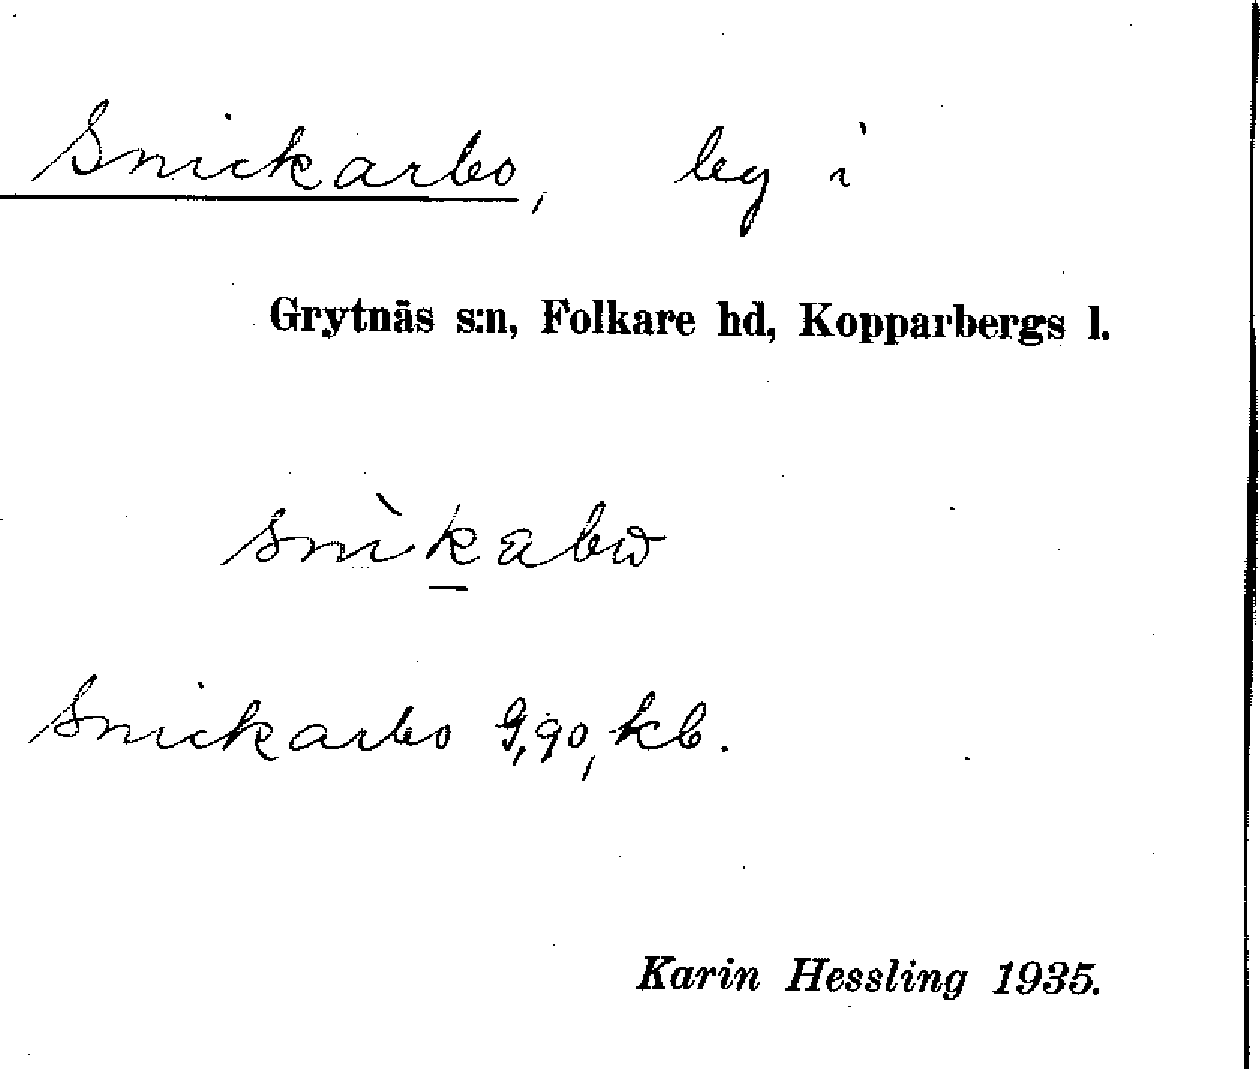 Snickarbo, leg i
Grytnäs s:n, Folkare hd, Kopparbergs l.
snìkabω
Snickarbo G, qo, kb.
Karin Hessling 1935.